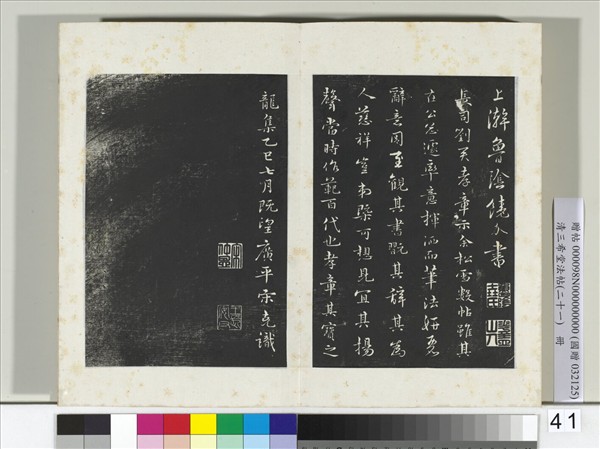 上澣魯陰饒介書
長司劉君孝章示余松雪數帖雖其
在公怱遽率意揮洒而筆法妍麗
辭意周至觀其書既其辭其爲
人慈祥豈弟槩可想見宜其揚
聲當時作範百代也孝章其寶之
龍集乙巳七月既望廣平宋克識
贈帖 000098N000000000 (國贈 032125)
清三希堂法帖(二十一) 冊
41